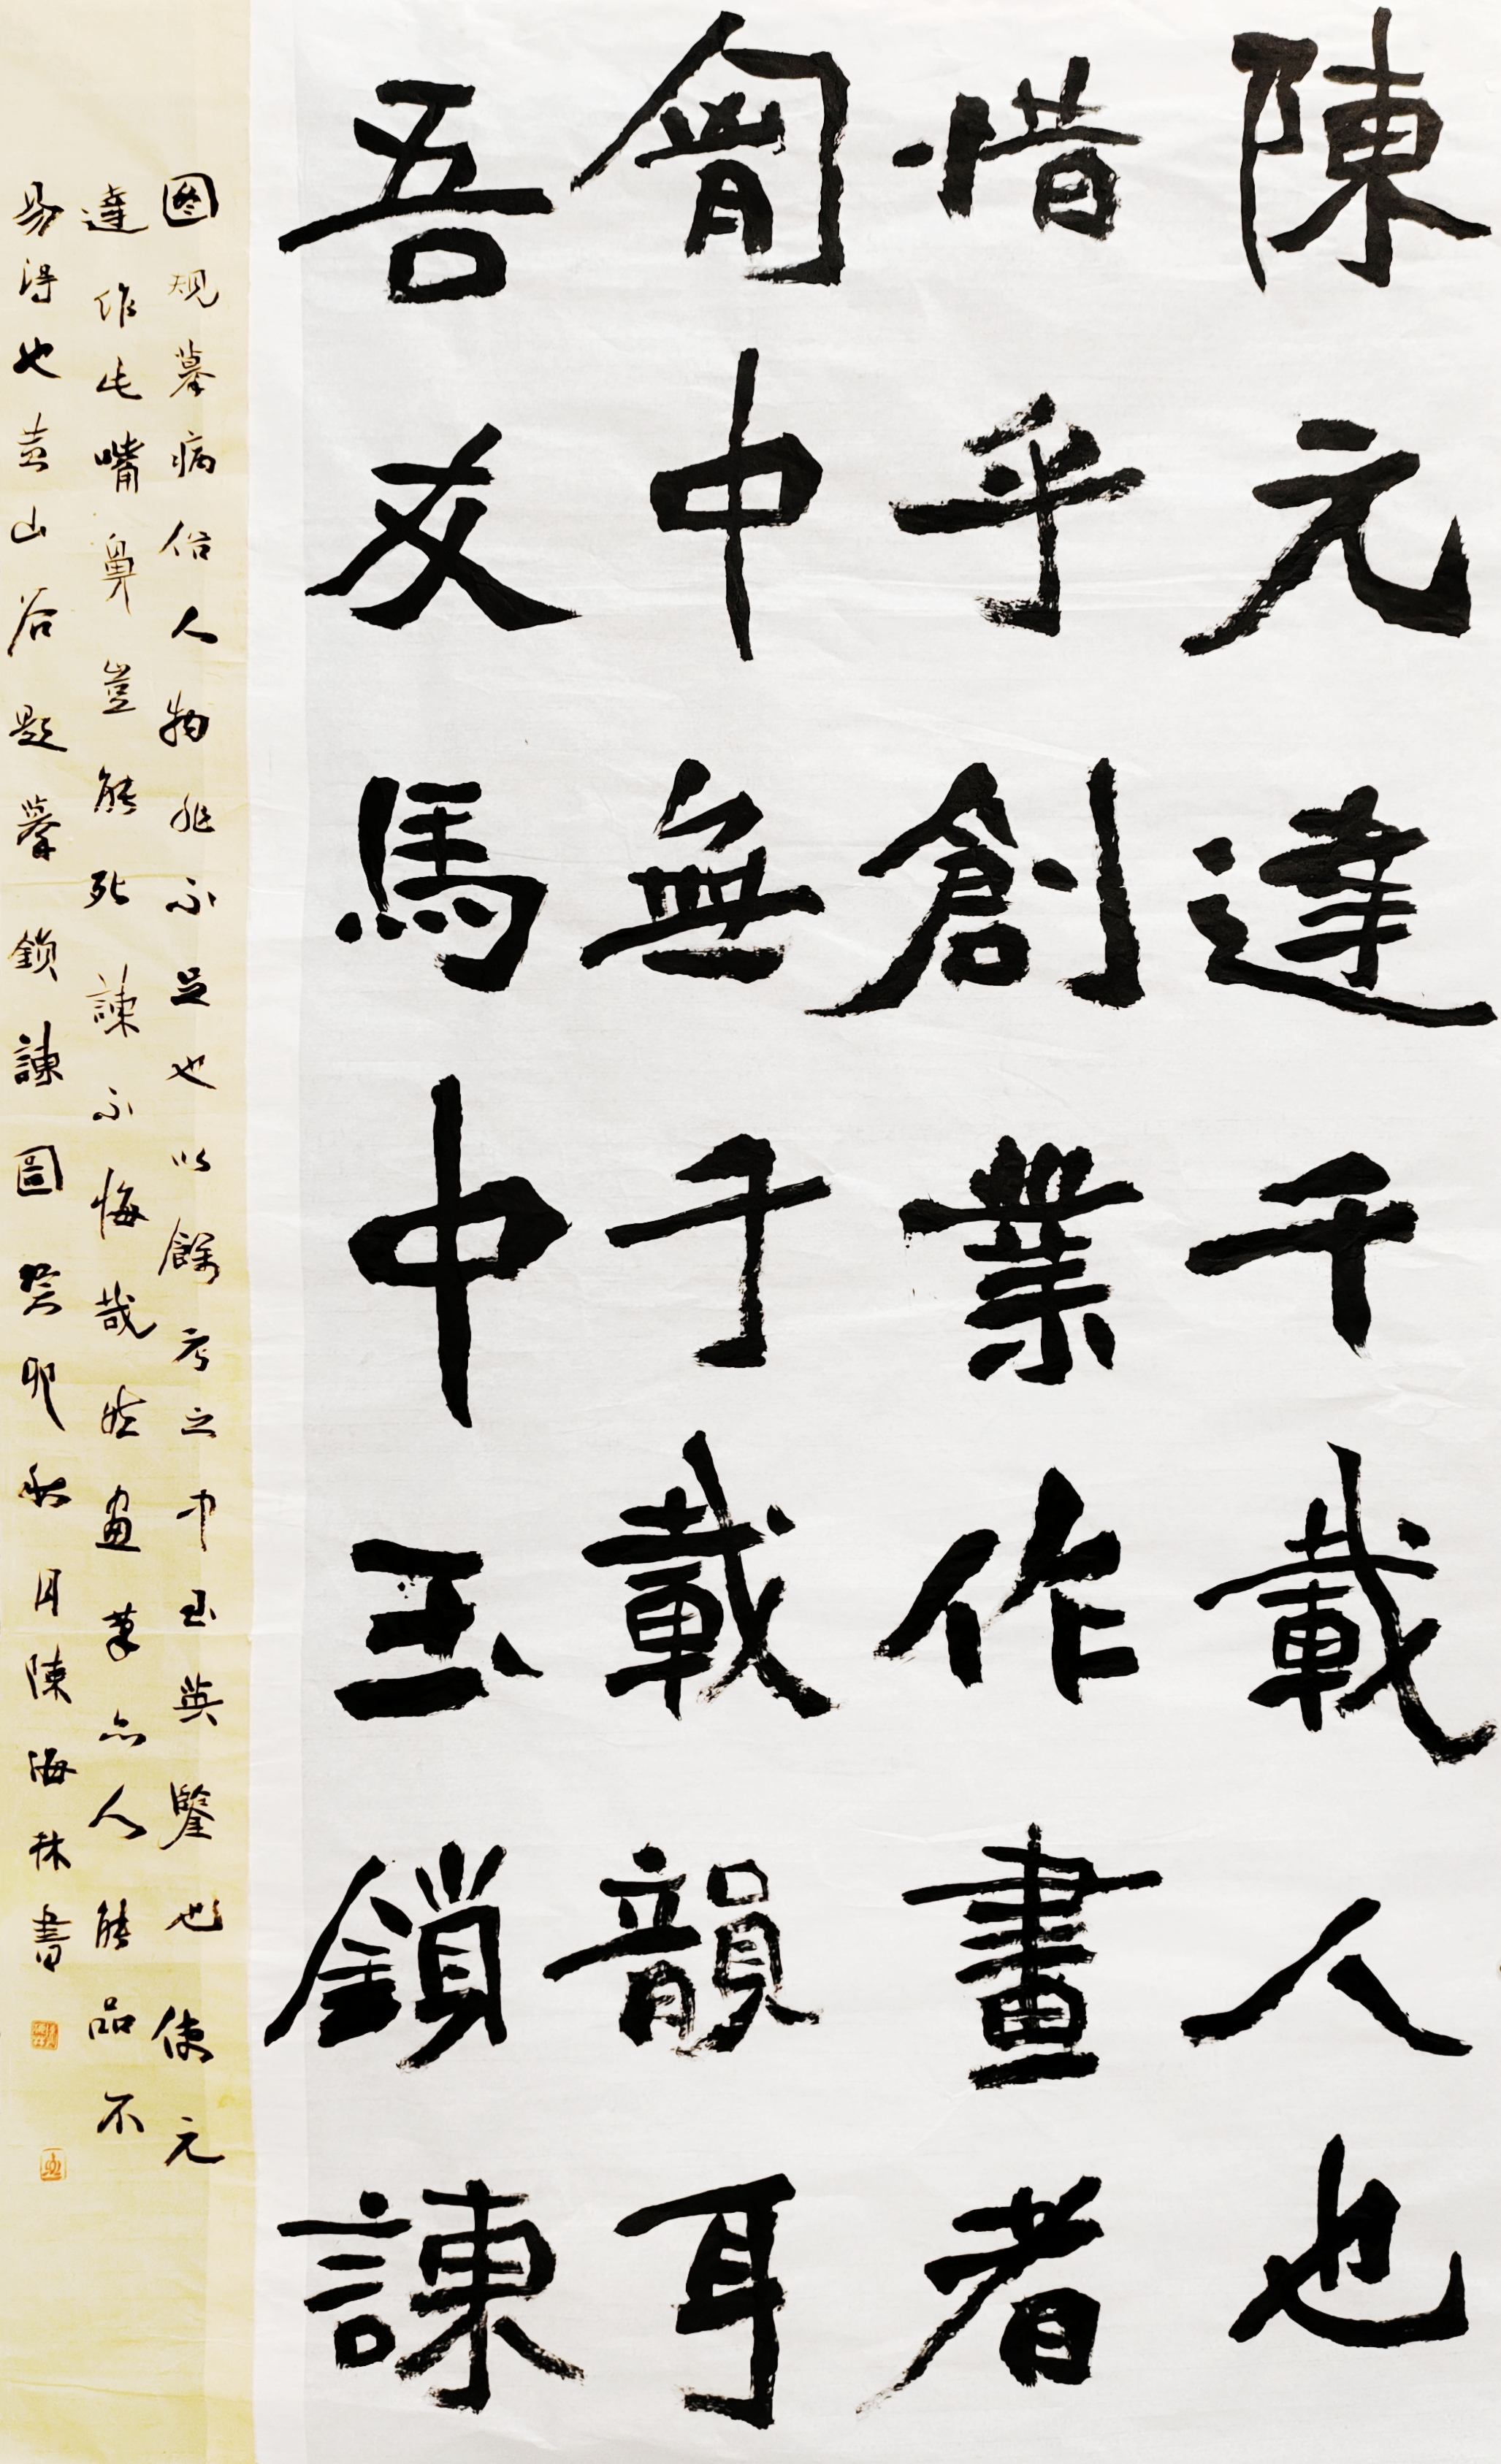 陳元達千載人也
惜乎創業作畫者
胷中無千載韻耳
吾友馬中玉鎖諫
图規摹病俗人物非不足也以餘考之中玉英鑒也使元
達作此嘴鼻豈能死諫不悔哉然畫筆亦人能品不
易得也黃山谷題摹鎖諫圖癸卯秋月陳海林書